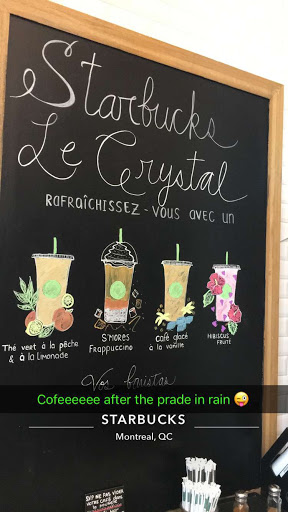 Starbucks
Le Crystal
RAFRAÎCHISSEZ-VOUS AVEC UN
Thé vert à la pêche
& à la limonade
S'MORES
Frappuccino
café glacé
à la vanille
HIBISCUS
FRUITÉ
Vos baristas
Cofeeeeee after the prade in rain 😜
STARBUCKS
Montreal, QC
S'IL NE PAS VIDER
VOTRE CAFÉ DANS